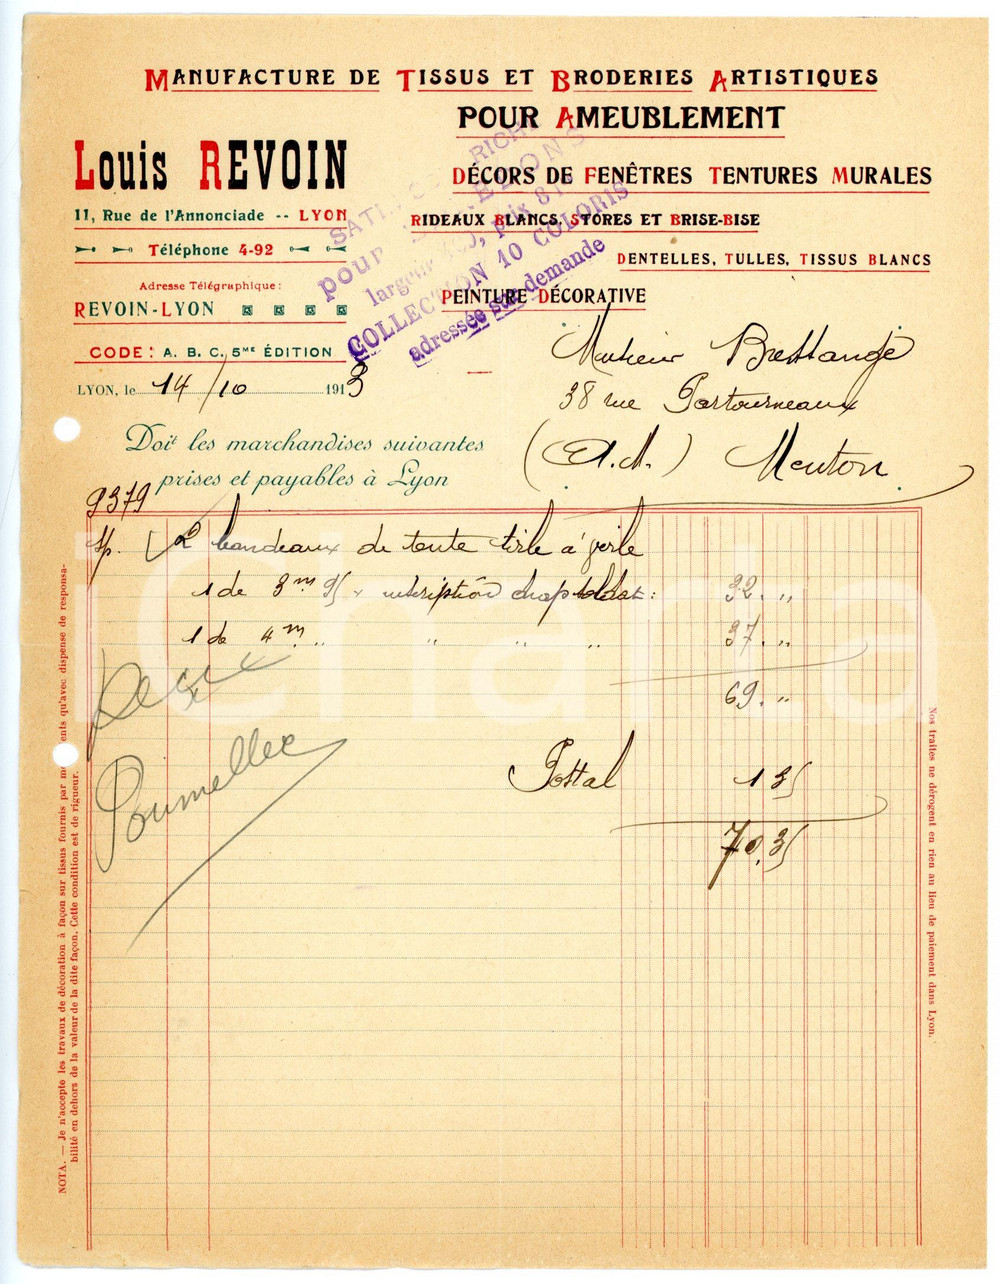 MANUFACTURE DE TISSUS ET BRODERIES ARTISTIQUES
POUR AMEUBLEMENT
Louis REVOIN
DÉCORS DE FENÊTRES TENTURES MURALES
11, Rue de l'Annonciade -- LYON
RIDEAUX BLANCS, STORES ET BRISE-BISE
Téléphone 4-92
DENTELLES, TULLES, TISSUS BLANCS
Adresse Télégraphique:
REVOIN-LYON
PEINTURE DÉCORATIVE
CODE: A. B. C. 5ME ÉDITION
pour
largeur
COLLECTION 10 COLORIS
adressée sur demande
LYON, le 14/10 1913
Monsieur
38 rue Partourneaux
(A.M.) Menton
Doit les marchandises suivantes
prises et payables à Lyon
9379
2 bandeaux de tente
1 de 3m 95 inscription : 32. "
1 de 4m " " " " 37. "
69. "
Postal 1 35
70.35
NOTA. — Je n'accepte les travaux de décoration à façon sur tissus fournis par ents qu'avec dispense de responsa-
bilité en dehors de la valeur de la dite façon. Cette condition est de rigueur.
Nos traites ne dérogent en rien au lieu de paiement dans Lyon.
iCharta